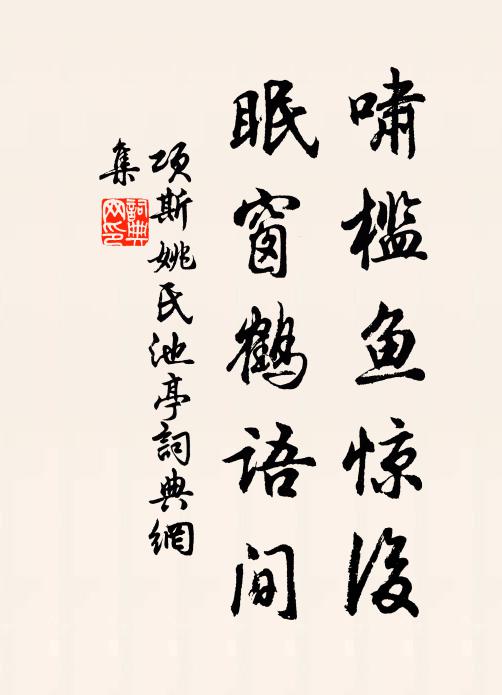 啸槛鱼惊后
眠窗鹤语间
项斯姚氏池亭詞典網
集
詞典网印